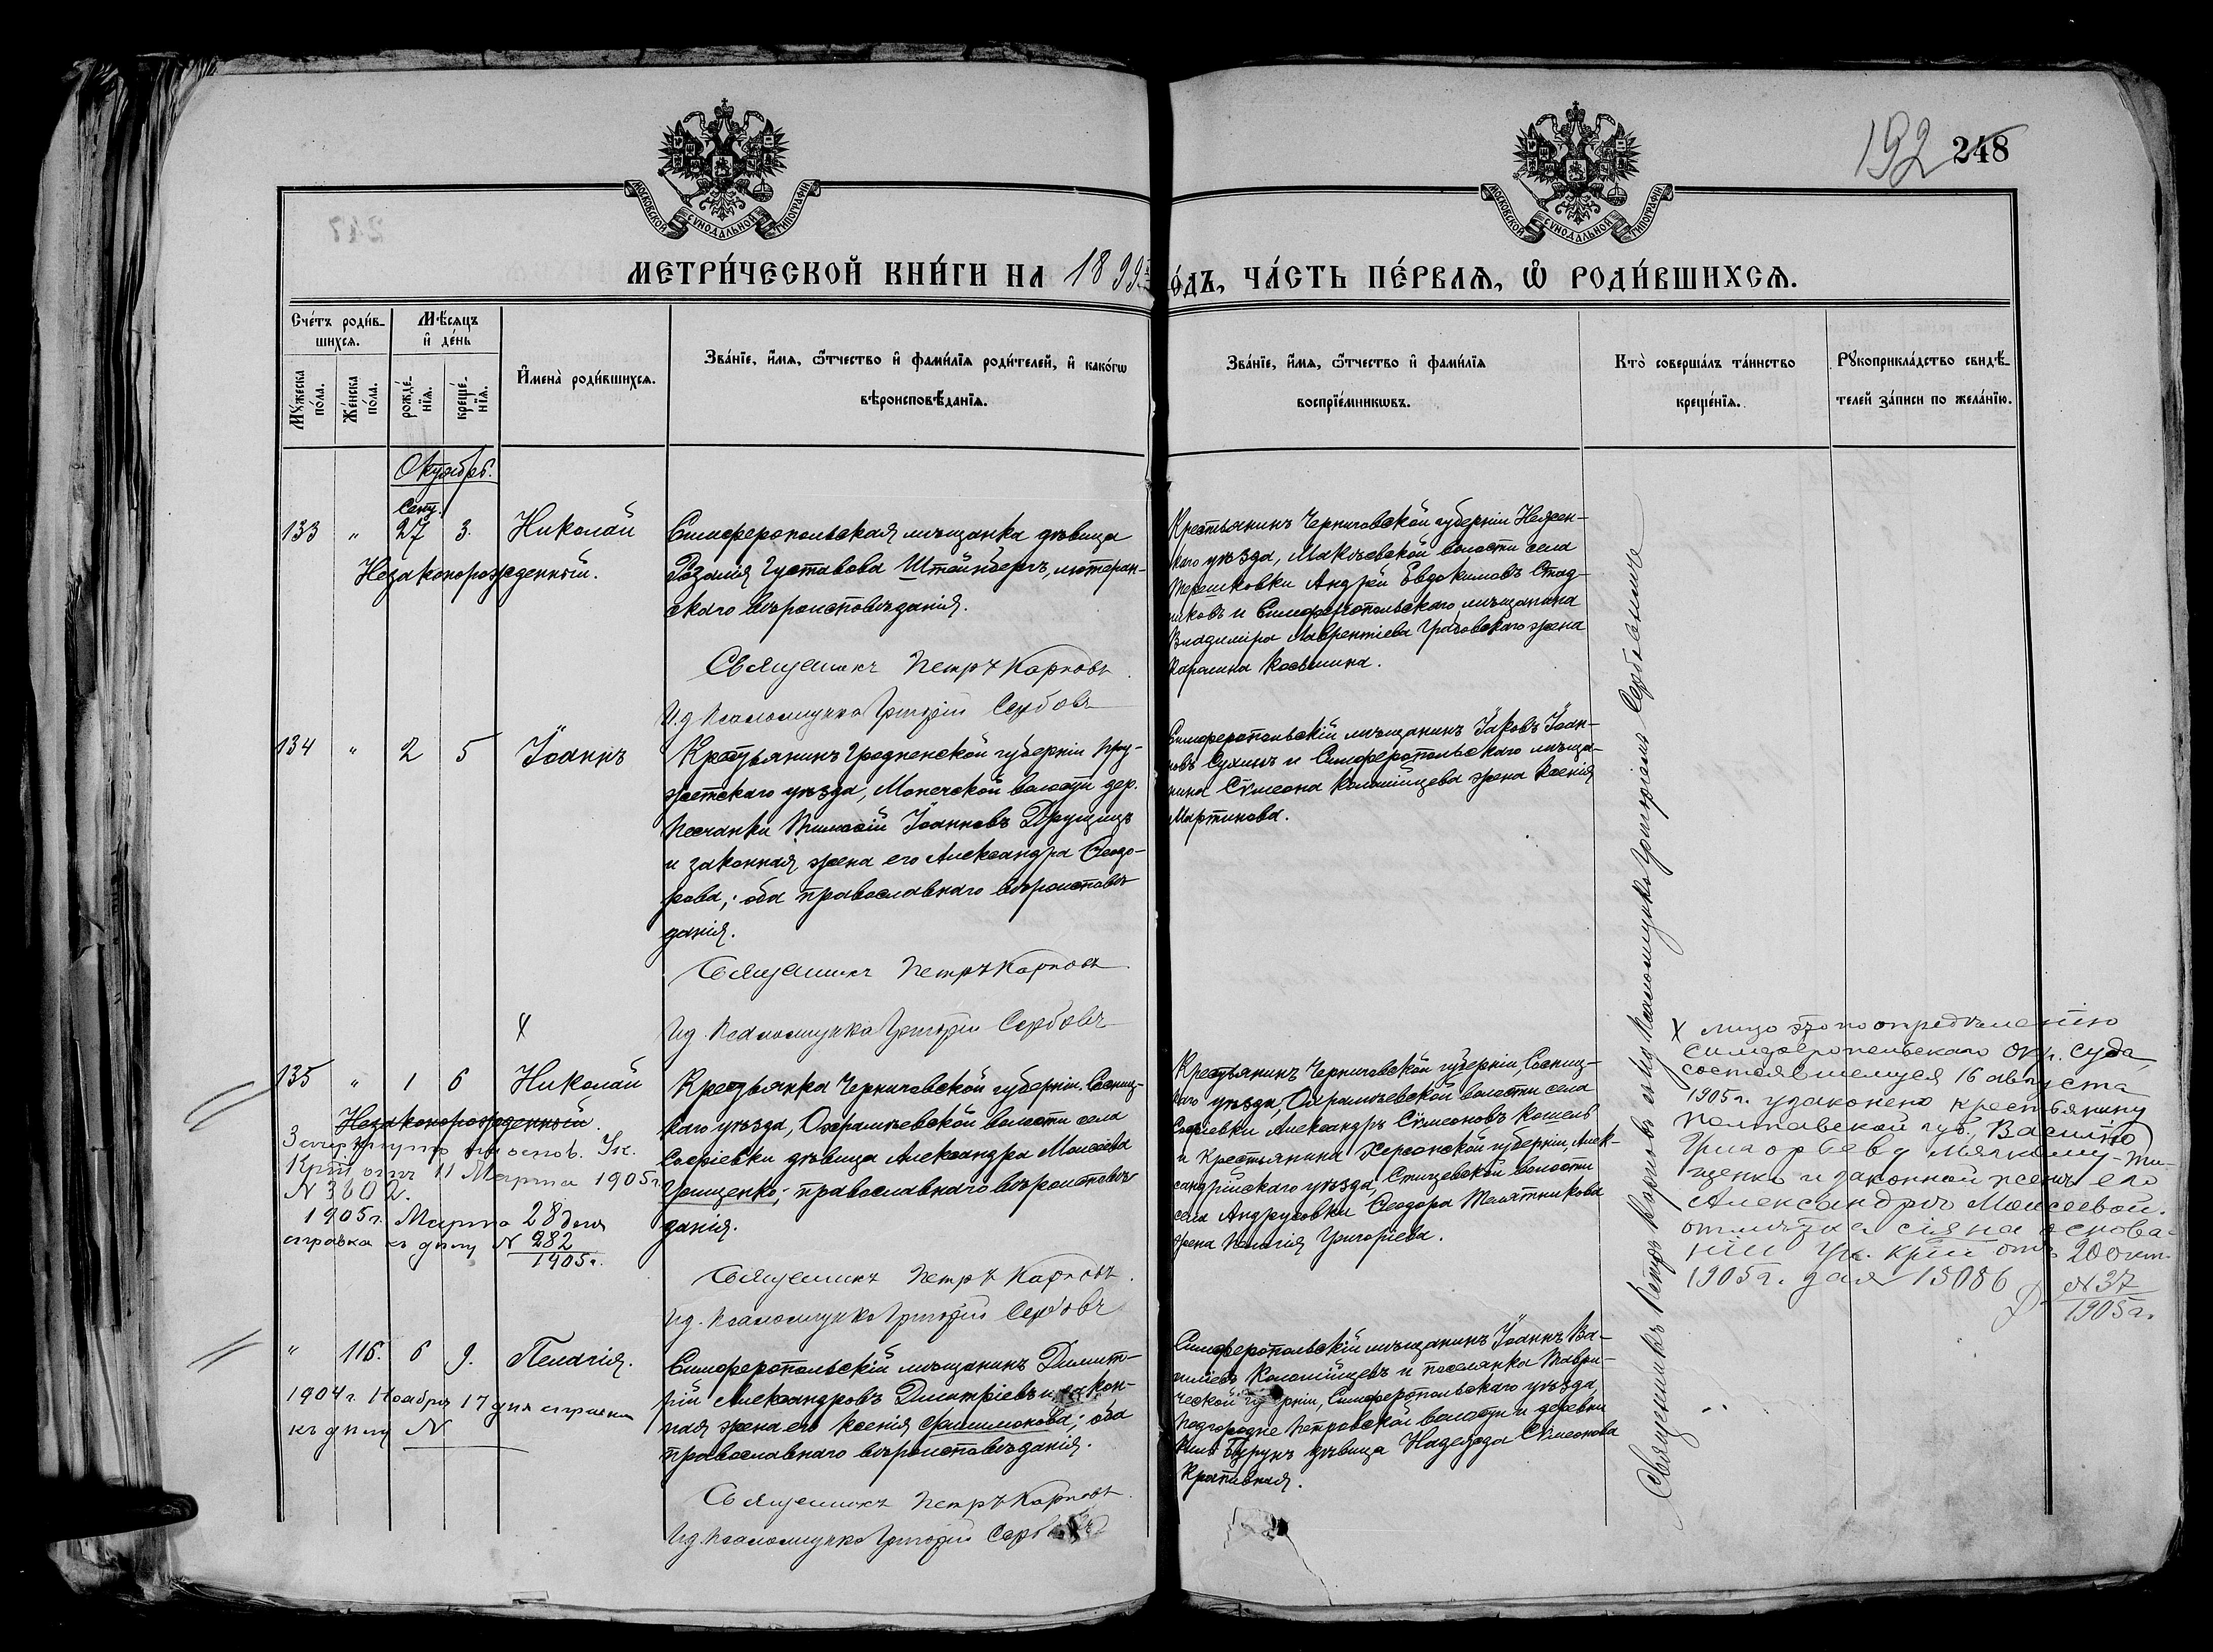 192 248
МОСКОВСКОЙ СѴНОДАЛЬНОЙ ТИПОГРАФІИ
МОСКОВСКОЙ СѴНОДАЛЬНОЙ ТИПОГРАФІИ
МЕТРИ́ЧЕСКОЙ КНИ́ГИ НА 1899 го́дъ, ЧА́СТЬ ПЕ́РВАѦ, Ѡ РОДИ́ВШИХСѦ.
Сче́тъ роди́в-
шихсѧ.
Мѣ́сѧцъ
и де́нь
Мꙋ́жеска по́ла.
Же́нска по́ла.
рожде́-нїѧ.
креще́-нїѧ.
Имена̀ роди́вшихсѧ.
Зва́нїе, и́мѧ, ѻ́тчество и фами́лїѧ роди́телей, и како́гѡ
вѣроисповѣ́данїѧ.
Зва́нїе, и́мѧ, ѻ́тчество и фами́лїѧ
воспрїе́мникѡвъ.
Кто̀ соверша́лъ та́инство
креще́нїѧ.
Рꙋкоприкла́дство свидѣ́-
телей за́писи по жела́нїю.
Октябрь.
Сент.
133 " 27 3. Николай
Незаконорожденный.
Симферопольская мѣщанка дѣвица
Розалія Густавова Штейнбергъ, лютеран-
скаго вѣроисповѣданія.
Священникъ Петръ Карповъ
И.д. псаломщика Григорій Сербовъ
Крестьянинъ Черниговской губерніи Нѣжен-
скаго уѣзда, Макѣевской волости села
Терешковки Андрей Евдокимовъ Стад-
никовъ и Симферопольскаго мѣщанина
Владиміра Лаврентіева жена
Козьмина.
134 " 2 5 Іоаннъ
Крестьянинъ Гродненской губерніи Пру-
жетскаго уѣзда, волости дер.
Песчанки Тимофій Іоанновъ
и законная жена его Александра Ѳеодо-
рова; оба православнаго вѣроисповѣ
данія.
Священникъ Петръ Карповъ
И.д. псаломщика Григорій Сербовъ
Симферопольскій мѣщанинъ Іаковъ Іоан-
новъ Сухинъ и Симферопольскаго мѣща-
нина Сѵмеона Коломійцева жена Ксенія
Мартинова.
Х
135 " 1 6 Николай
Незаконорожденный.
Зачеркнуто на основ. Ук.
Крыт. отъ 11 Марта 1905г.
N 3602.
1905г. Марта 28 дня
справка къ дѣлу N 282
1905г.
Крестьянка Черниговской губерніи Сосниц-
каго уѣзда, Охрамѣевской волости села
Софіевки дѣвица Александра Моисеева
Грищенко; православнаго вѣроисповѣ
данія.
Священникъ Петръ Карповъ
И.д. псаломщика Григорій Сербовъ
Крестьянинъ Черниговской губерніи, Сосниц-
каго уѣзда, Охрамѣевской волости села
Софіевки Александръ Сѵмеоновъ Кошель
и крестьянина Херсонской губерніи, Алек-
сандрійскаго уѣзда, волости
села Андрусовки Ѳеодора Телятникова
жена Пелагія Григоріева.
Х лицо это по опредѣленію
Симферопольскаго Окр. Суда,
состоявшемуся 16 августа
1905г. узаконено крестьянину
Полтавской губ. Василію
Григорьеву
и законной женѣ его
Александрѣ Моисеевой.
отмѣтка сія на основа-
ніи Ук. отъ 20 окт.
1905г. за N 15086
N 37
1905г.
" 116. 6 9. Пелагія.
1904г. Ноября 17 дня справка
къ дѣлу N
Симферопольскій мѣщанинъ Димит-
рій Александровъ Димитріевъ и закон-
ная жена его Ксенія Филимонова; оба
православнаго вѣроисповѣданія.
Священникъ Петръ Карповъ
И.д. псаломщика Григорій Сербовъ
Симферопольскій мѣщанинъ Іоаннъ Ва-
силіевъ Коломійцевъ и поселянка Таври-
ческой губерніи, Симферопольскаго уѣзда,
Подгородне Петровской волости и деревни
Бурунъ дѣвица Надежда Сѵмеонова
Кропивная.
Священникъ Петръ Карповъ съ и.д. псаломщика Григоріемъ Сербовымъ